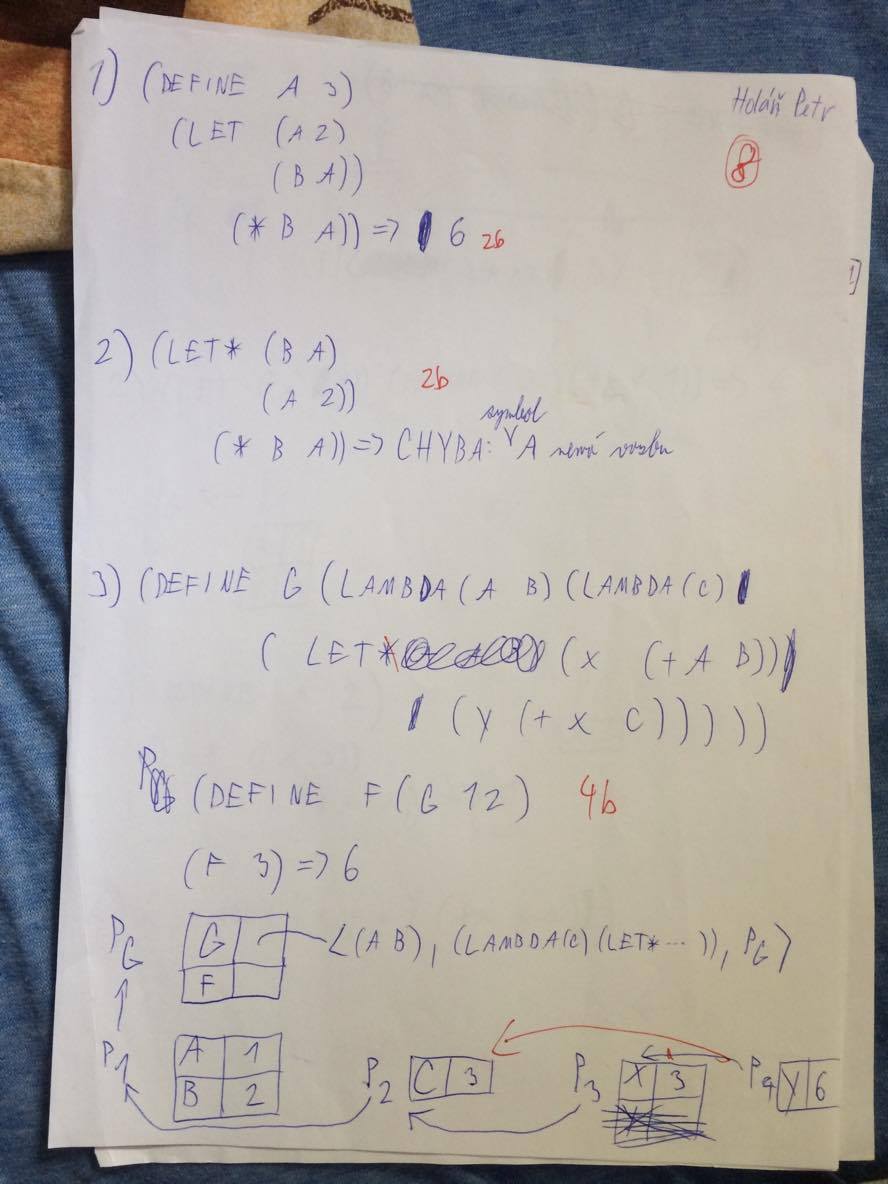 Holáň Petr
8
1) (DEFINE A 3)
(LET (A 2)
(B A))
(* B A)) => 6 2b
2) (LET* (B A)
(A 2)) 2b
symbol
(* B A)) => CHYBA: A nemá vazbu
3) (DEFINE G (LAMBDA (A B) (LAMBDA (C)
( LET* (X (+ A B))
(Y (+ X C)))))
(DEFINE F (G 1 2) 4b
(F 3) => 6
PG G <(A B), (LAMBDA(C) (LET* ... )), PG>
F
P1 A 1 P2 C 3 P3 X 3 P4 Y 6
B 2